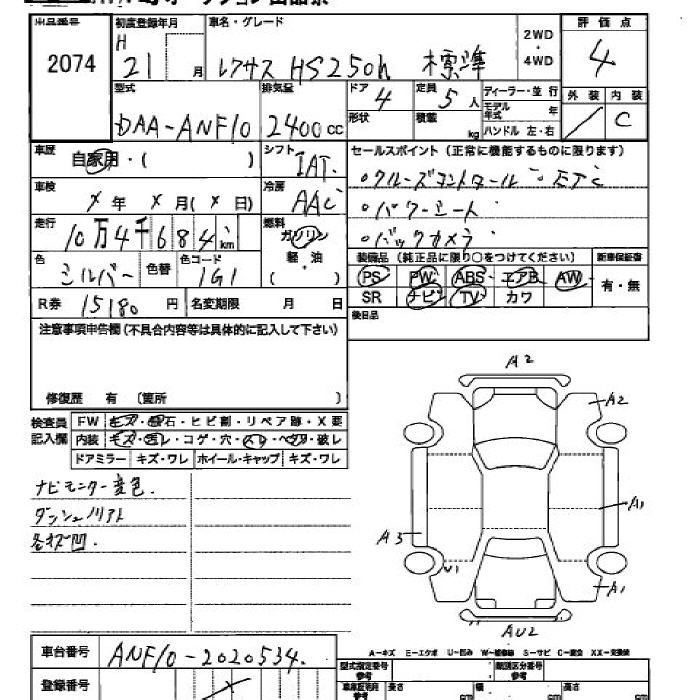 出品番号 初度登録年月 車名・グレード 2WD・4WD 評価点
2074 H 21 月 レクサス HS250h 標準 4
型式 排気量 ドア 4 定員 5人 ディーラー・並行 外装 内装
DAA-ANF10 2400cc 形状 積載 kg モデル年式 年 C
ハンドル 左・右
車歴 自家用・( ) シフト IAT セールスポイント(正常に機能するものに限ります)
・クルーズコントロール
車検 X年 X月(X日) 冷房 AAC ・パワーシート
走行 10万4千684km 燃料 ガソリン ・バックカメラ
色 シルバー 色替 色コード 1G1 軽・油 ( ) 装備品(純正品に限り○をつけてください) 新車保証書
PS PW ABS エアB AW 有・無
R券 15180円 名変期限 月 日 SR ナビ TV カワ
注意事項申告欄(不具合内容等は具体的に記入して下さい) 後日品
修復歴 有 〔箇所 〕
検査員記入欄 FW キズ・飛石・ヒビ割・リペア跡・X要
内装 キズ・汚レ・コゲ・穴・スレ・ベタ・破レ
ドアミラー キズ・ワレ ホイール・キャップ キズ・ワレ
ナビモニター変色.
ダッシュ
各キズ凹.
A2
A2
A1
A3
U1
A1
AU2
A-キズ E-エクボ U-凹み W-補修跡 S-サビ C-腐食 XX-交換済
車台番号 ANF10-2020534.
型式指定番号 参考 類別区分番号 参考
登録番号 車庫証明用 参考 長さ cm 幅 cm 高さ cm